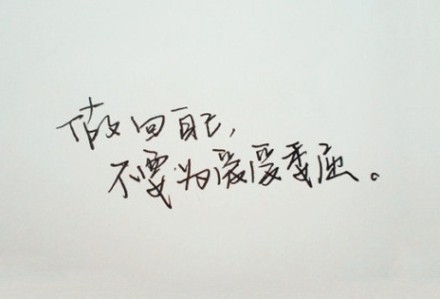 做回自己，
不要为爱受委屈。